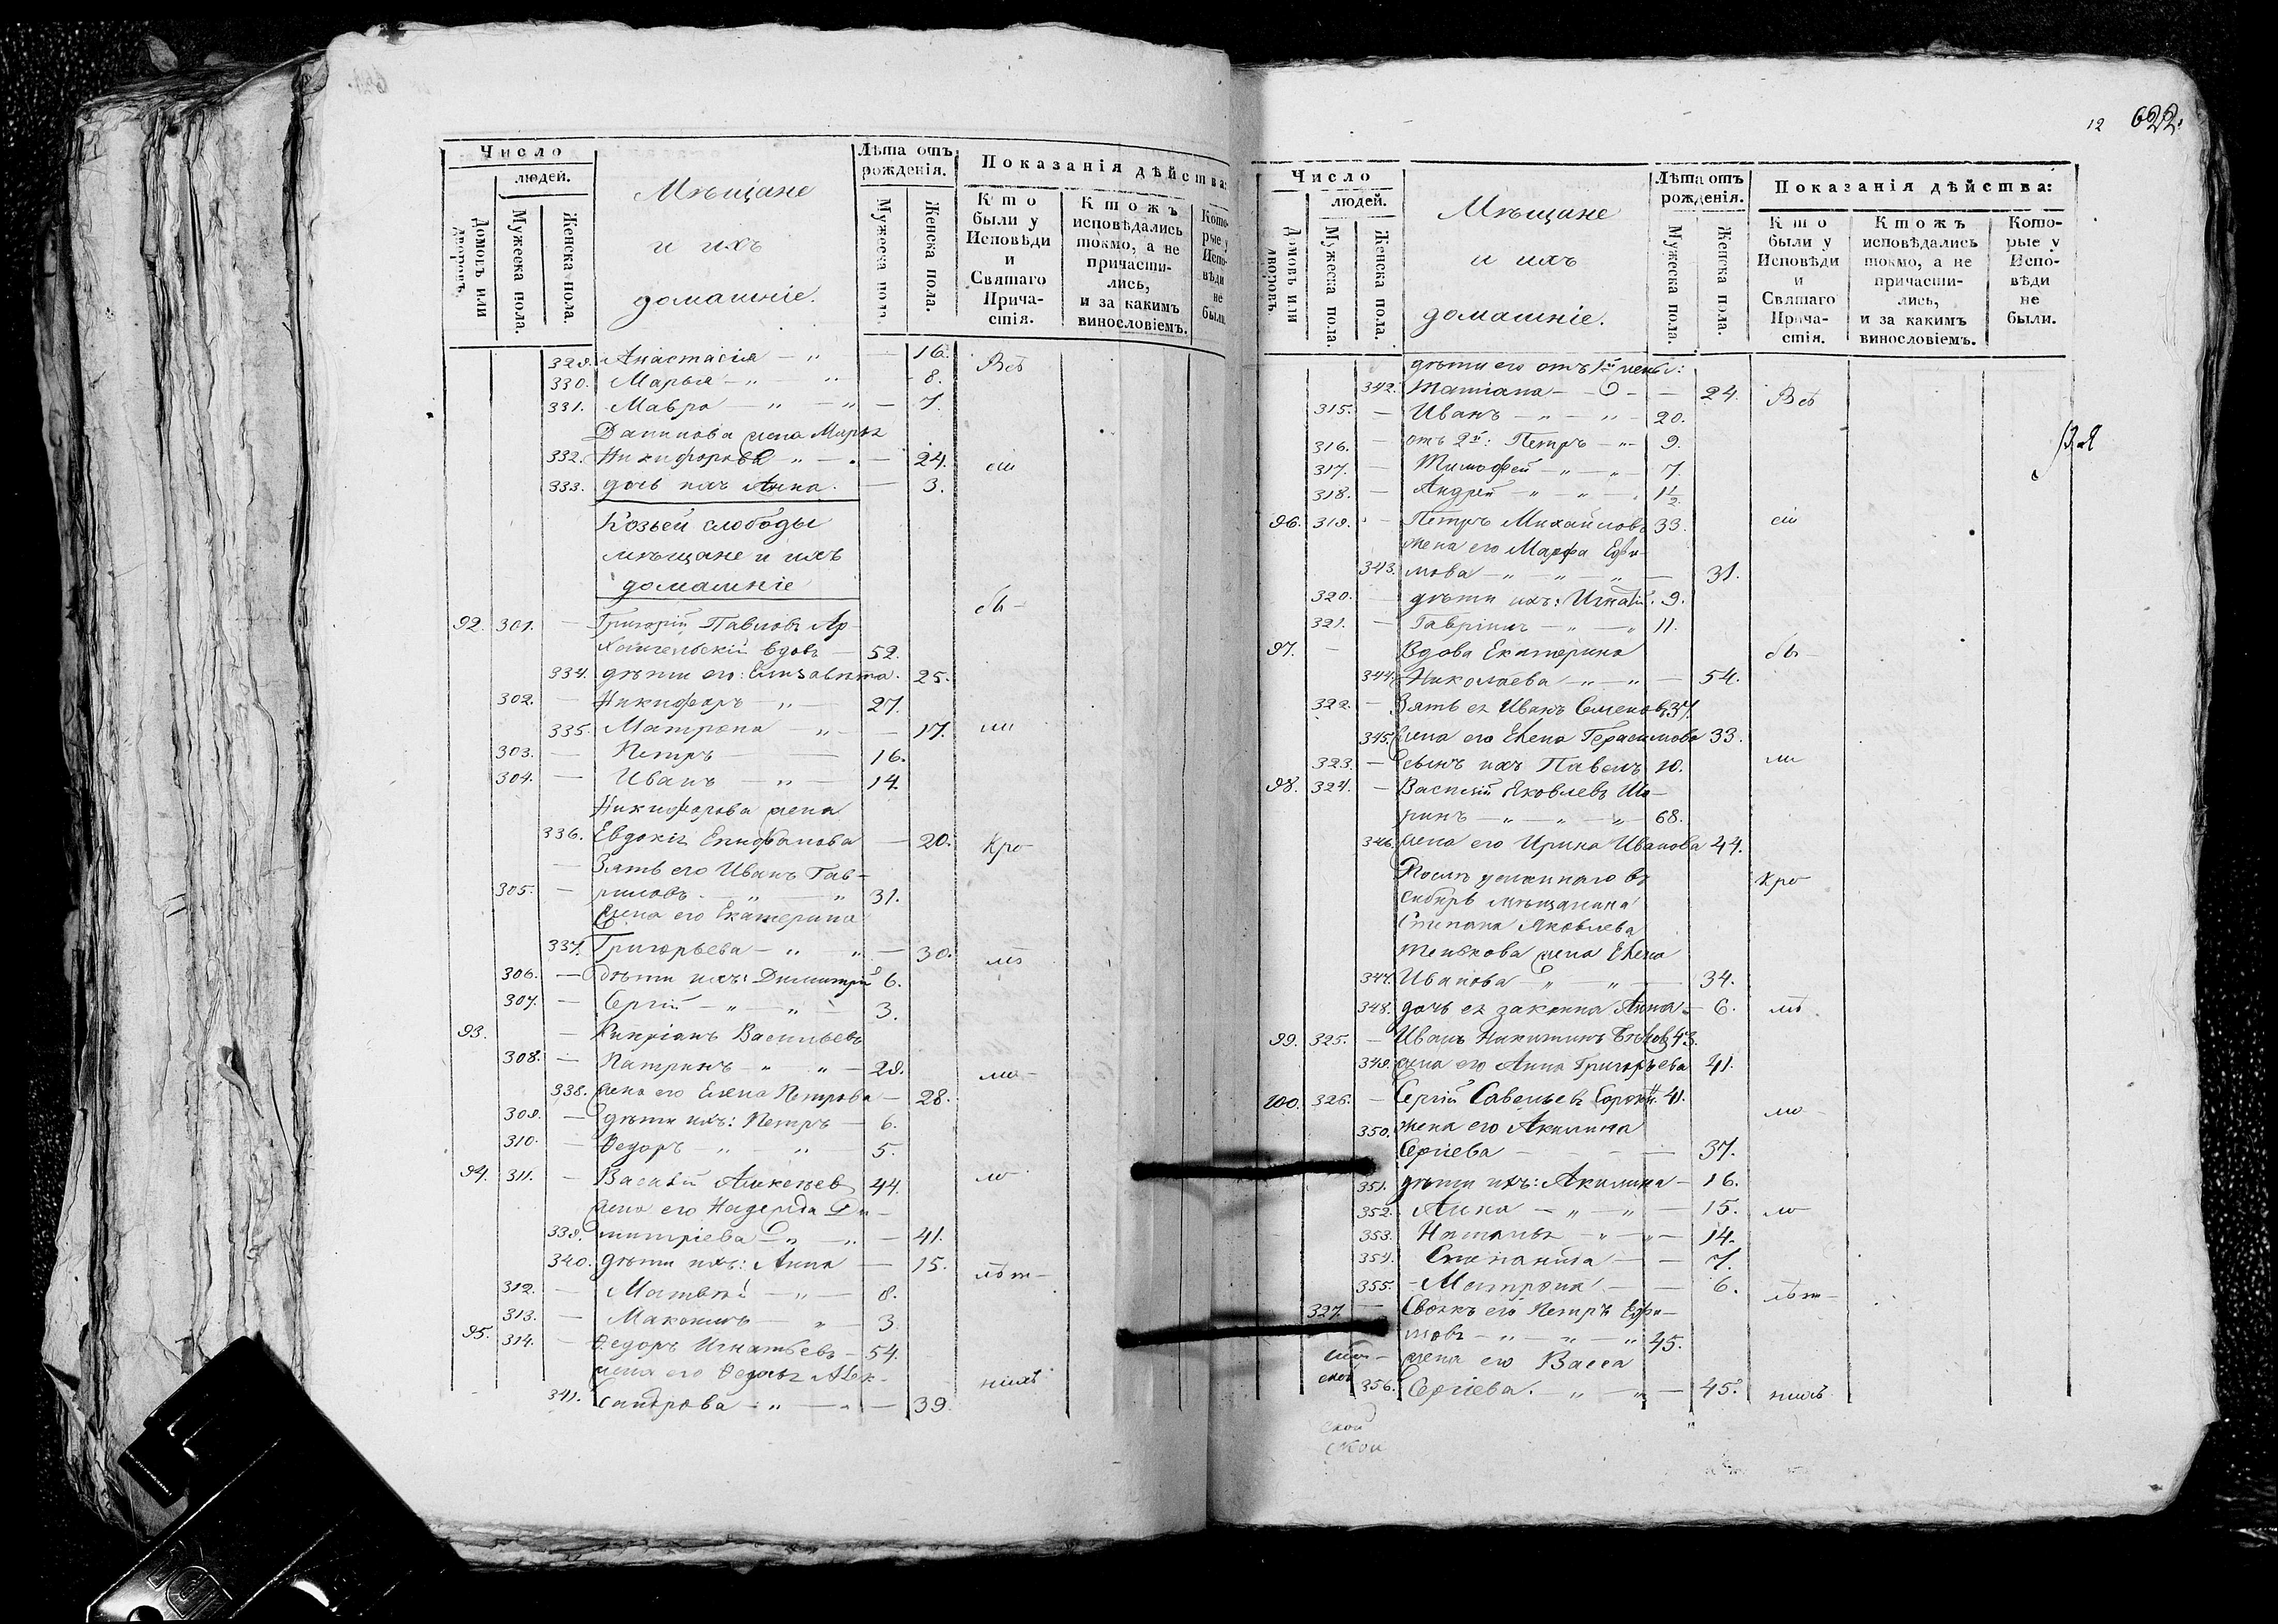 Число
людей.
Домовъ или дворовъ.
Мужеска пола.
Женска пола.
Мѣщане
и ихъ
домашніе.
Лѣта отъ рожденія.
Мужеска пола.
Женска пола.
Показанія дѣйства:
Кто были у Исповѣди и Святаго Причастія.
Ктожъ исповѣдались токмо, а не причастились, и за какимъ винословіемъ.
Которые у Исповѣди не были.
329. Анастасія — „ — 16. Всѣ
330. Марья — „ — „ 8.
331. Мавра „ — „ — 7.
Данилова жена Марѳа
332. Никифорова „ — „ — 24. сіи
333. дочь ихъ Анна. — 3.
Козьей слободы
мѣщане и ихъ
домашніе
бы —
92. 301. — Григорій Павловъ Ар-
хангельскій вдовъ — 52.
334. дѣти его: Елизавета. 25.
302. — Никифоръ — „ 27.
335. Матрона — „ — 17. ли
303. — Петръ — — 16.
304. — Иванъ — „ — 14.
Никифорова жена
336. Евдокія Епифанова — 20. кро
— Зять его Иванъ Гав-
305. — риловъ. — „ — „ 31.
Жена его Екатерина
337. Григорьева — „ „ — 30. мѣ
306. — дѣти ихъ: Димитрій 6.
307. — Сергій — „ — „ — 3.
93. — Кипріанъ Васильевъ
308. — Патринъ — „ „ — 29. ма —
338. жена его Елена Петрова — 28.
309. — дѣти ихъ: Петръ — 6.
310. — Ѳедоръ — „ — „ — 5.
94. 311. — Василій Алексѣевъ 44. ло
жена его Надежда Ди-
339. митріева — „ — „ — 41.
340. дѣти ихъ: Анна — 15. лѣт —
312. — Матвѣй — „ — 8.
313. — Максимъ — „ — 3.
95. 314. — Ѳедоръ Игнатьевъ — 54.
жена его Ѳедосья Алек- нихъ
341. сандрова — „ — „ — 39.
12 622.
Число
людей.
Домовъ или дворовъ.
Мужеска пола.
Женска пола.
Мѣщане
и ихъ
домашніе.
Лѣта отъ рожденія.
Мужеска пола.
Женска пола.
Показанія дѣйства:
Кто были у Исповѣди и Святаго Причастія.
Ктожъ исповѣдались токмо, а не причастились, и за какимъ винословіемъ.
Которые у Исповѣди не были.
дѣти его отъ 1й жены:
342. Татіана — — 24. Всѣ
315. — Иванъ — „ — „ — 20.
316. — отъ 2й: Петръ — „ — 9.
317. — Тимофей — „ — „ — 7.
318. — Андрей — „ — „ — 1½
96. 319. — Петръ Михайловъ 33. сіи
жена его Марфа Ефи-
343. мова — „ — „ — „ — 31.
320. — дѣти ихъ: Игнатій. 9.
321. — Гавріилъ — „ — „ 11.
97. — Вдова Екатерина бы —
344. Николаева — „ — „ — 54.
322. — Зять ея Иванъ Семеновъ 37.
345. жена его Елена Герасимова 33.
323. — сынъ ихъ Павелъ 10. ли
98. 324. — Василій Яковлевъ Ша-
ринъ — „ — „ — „ — 68.
346. жена его Ирина Иванова 44.
Послѣ сосланнаго въ кро
сибирь мѣщанина
Степана Яковлева
жена Елена
347. Иванова „ — „ — 34.
348. дочь ея законна Анна — 6. мѣ
99. 325. — Иванъ Никитинъ 43.
349. жена его Анна Григорьева 41.
100. 326. — Сергій Савельевъ 41. ма
350. жена его Акилина
Сергіева — — — 37.
351. дѣти ихъ: Акилина — 16.
352. Анна — „ — „ — 15. ло
353. Наталья — „ — „ — 14.
354. Степанида — — 7.
355. — Матрона — — 6. лѣт —
327. — Своякъ его Петръ Ефи-
мовъ — „ — „ — „ 45.
жена его Васса
356. Сергіева. — „ — „ — 45. нихъ
ской
ской